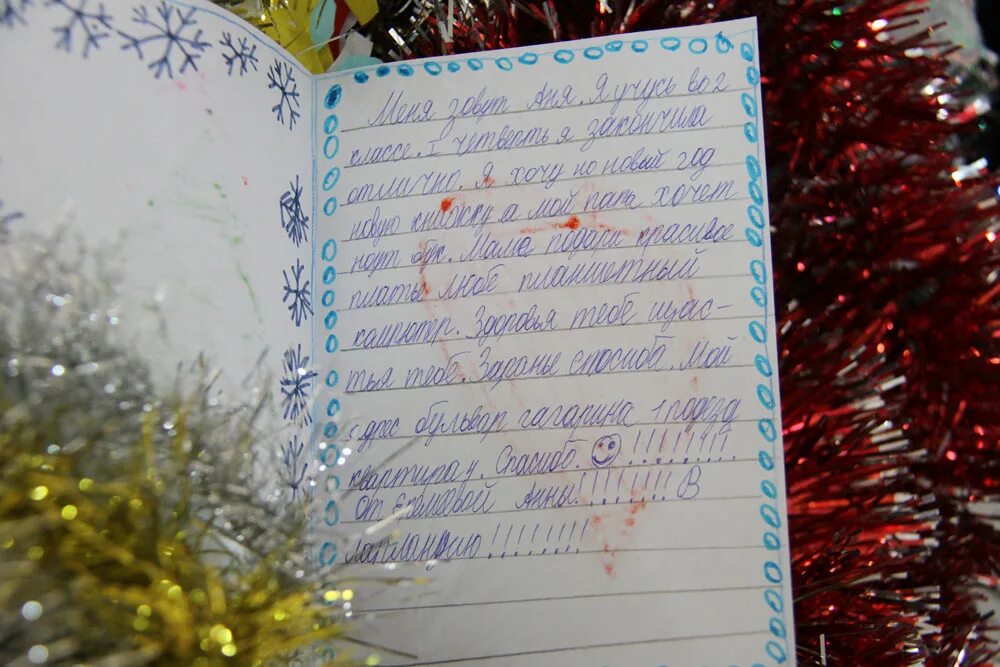 Меня зовут Аня. Я учусь во 2
классе. I четверть я закончила
отлично. Я хочу но новый год
новую книжку а мой папа хочет
ноут бук. Маме подари красивое
платье любе планшетный
кампютр. Здоровья тебе щас-
тья тебе. Заранье спосибо. Мой
адрес бульвар гагарина 1 подезд
квартира 4. Спасибо. !!!!!!!!!
От Анны!!!!!!!!! В
лапландию!!!!!!!!!